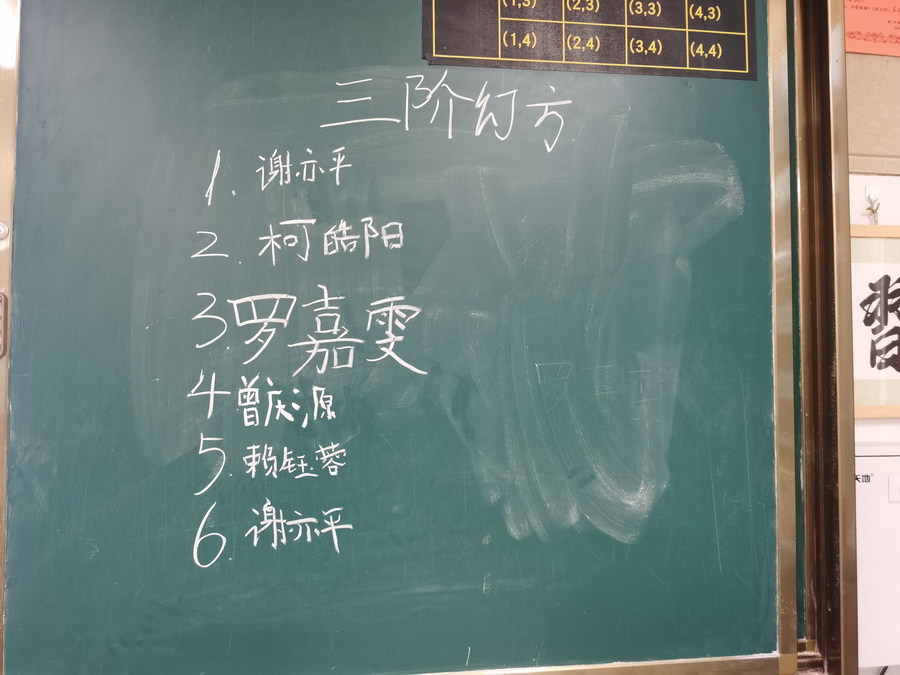 (1,3) (2,3) (3,3) (4,3)
(1,4) (2,4) (3,4) (4,4)
三阶幻方
1. 谢亦平
2. 柯皓阳
3. 罗嘉雯
4 曾庆源
5. 赖钰蓉
6. 谢亦平
习
天地®